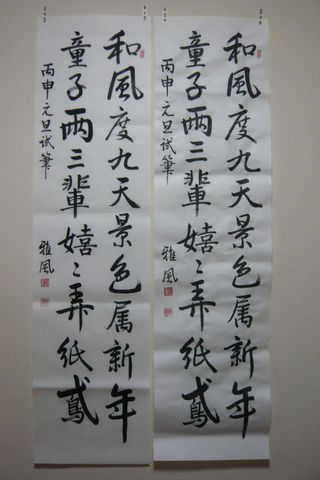 和風度九天景色属新年
童子两三輩嬉〻弄紙鳶
丙申元旦试筆
雅風
和風度九天景色属新年
童子两三輩嬉〻弄紙鳶
丙申元旦试筆
雅風